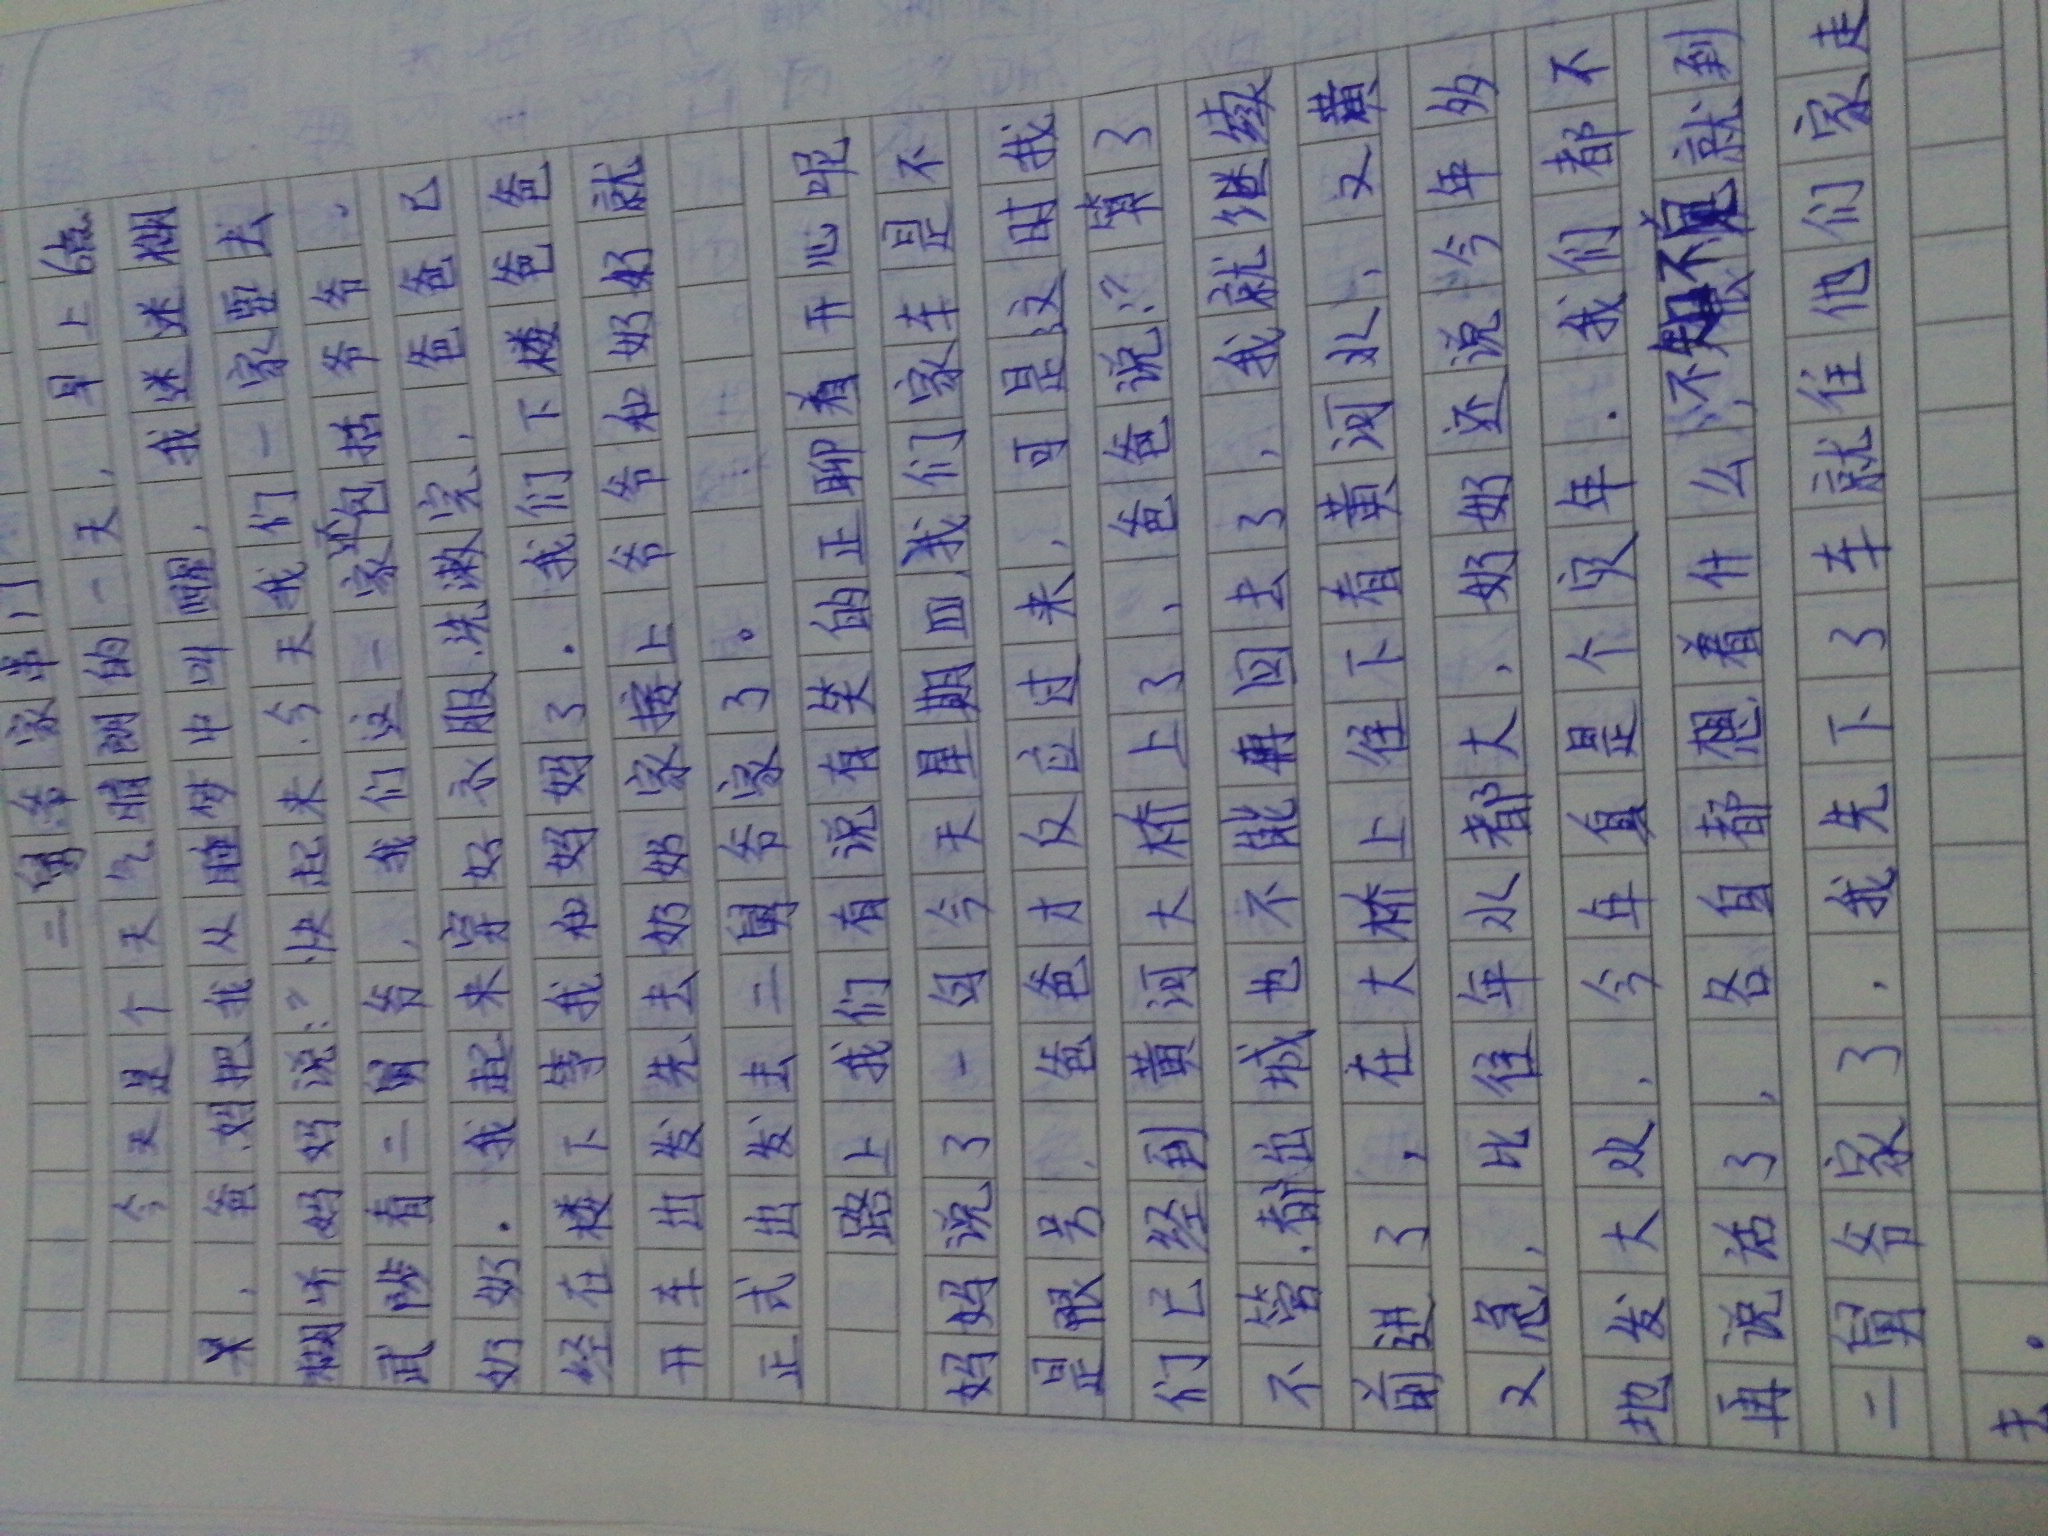 二舅爷家串门
今天是个天气晴朗的一天，早上6点
来，爸妈把我从睡梦中叫醒，我迷迷糊
糊听妈妈说:"快起来.今天我们一家要去
武陟看二舅爷，我们这一家还包括爷爷.
奶奶.我起来穿好衣服.洗漱完，爸爸已
经在楼下等我和妈妈了.我们下楼爸爸
开车出发先去奶奶家接上爷爷和奶奶就
正式出发去二舅爷家了。
路上我们有说有笑的正聊着开心呢
妈妈说了一句今天星期四我们家车是不
是限号.爸爸才反应过来，可是这时我
们已经到黄河大桥上了，爸爸说:"算了
不管.都出城也不能再回去了，我就继续
前进了，在大桥上往下看黄河水，又黄
又急，比往年水都大，奶奶还说今年多
地发大水，今年真是个灾年.我们都不
再说话了，各自都想着什么，不就到
二舅爷家了.我先下了车就往他们家走
去。